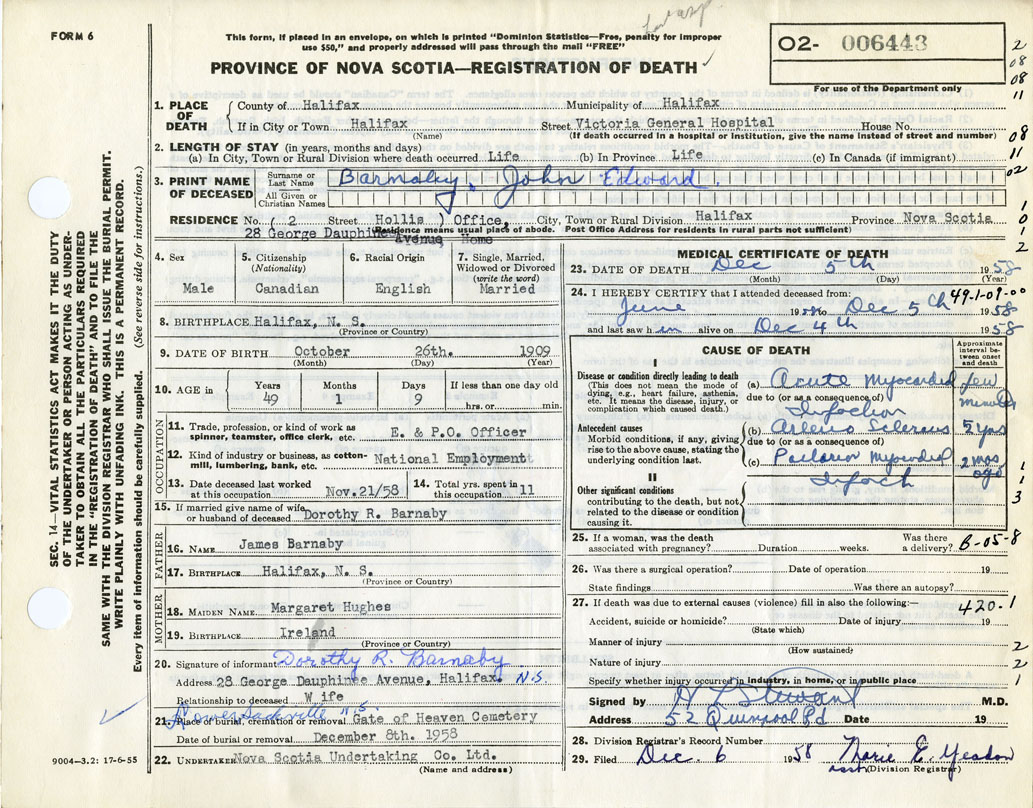 FORM 6
This form, if placed in an envelope, on which is printed "Dominion Statistics—Free, penalty for improper
use $50," and properly addressed will pass through the mail "FREE"
PROVINCE OF NOVA SCOTIA—REGISTRATION OF DEATH
02- 006443
For use of the Department only
2
08
08
11
08
11
02
1
0
1
2
SEC. 14—VITAL STATISTICS ACT MAKES IT THE DUTY
OF THE UNDERTAKER OR PERSON ACTING AS UNDER-
TAKER TO OBTAIN ALL THE PARTICULARS REQUIRED
IN THE "REGISTRATION OF DEATH" AND TO FILE THE
SAME WITH THE DIVISION REGISTRAR WHO SHALL ISSUE THE BURIAL PERMIT.
WRITE PLAINLY WITH UNFADING INK. THIS IS A PERMANENT RECORD.
Every item of information should be carefully supplied. (See reverse side for instructions.)
1. PLACE OF DEATH
County of Halifax Municipality of Halifax
If in City or Town Halifax Street Victoria General Hospital House No.
(Name) (If death occurred in a hospital or institution, give the name instead of street and number)
2. LENGTH OF STAY (in years, months and days)
(a) In City, Town or Rural Division where death occurred Life (b) In Province Life (c) In Canada (if immigrant)
3. PRINT NAME OF DECEASED
Surname or Last Name Barnaby, John Edward.
All Given or Christian Names
RESIDENCE No. ( 2 Street Hollis ) Office, City, Town or Rural Division Halifax Province Nova Scotia
28 George Dauphinee Avenue Home
Residence means usual place of abode. Post Office Address for residents in rural parts not sufficient)
4. Sex
Male
5. Citizenship (Nationality)
Canadian
6. Racial Origin
English
7. Single, Married, Widowed or Divorced (write the word)
Married
8. BIRTHPLACE Halifax, N. S.
(Province or Country)
9. DATE OF BIRTH October 26th. 1909
(Month) (Day) (Year)
10. AGE in Years Months Days If less than one day old
49 1 9 hrs. or min.
OCCUPATION
11. Trade, profession, or kind of work as spinner, teamster, office clerk, etc. E. & P.O. Officer
12. Kind of industry or business, as cotton-mill, lumbering, bank, etc. National Employment
13. Date deceased last worked at this occupation Nov.21/58
14. Total yrs. spent in this occupation 11
15. If married give name of wife or husband of deceased Dorothy R. Barnaby
FATHER
16. NAME James Barnaby
17. BIRTHPLACE Halifax, N. S.
(Province or Country)
MOTHER
18. MAIDEN NAME Margaret Hughes
19. BIRTHPLACE Ireland
(Province or Country)
20. Signature of informant Dorothy R. Barnaby
Address 28 George Dauphinee Avenue, Halifax. N.S.
Relationship to deceased Wife
Lower Sackville N.S.
21. Place of burial, cremation or removal Gate of Heaven Cemetery
Date of burial or removal December 8th. 1958
22. UNDERTAKER Nova Scotia Undertaking Co. Ltd.
(Name and address)
9004—3.2: 17-6-55
MEDICAL CERTIFICATE OF DEATH
23. DATE OF DEATH Dec 5th 1958
(Month) (Day) (Year)
24. I HEREBY CERTIFY that I attended deceased from: 49-1-09-00
June 1958 to Dec 5th 1958
and last saw him alive on Dec 4th 1958
CAUSE OF DEATH
Approximate interval between onset and death
I
Disease or condition directly leading to death
(This does not mean the mode of dying, e.g., heart failure, asthenia, etc. It means the disease, injury, or complication which caused death.)
(a) Acute Myocardial few minutes
due to (or as a consequence of)
Infarction
Antecedent causes
Morbid conditions, if any, giving rise to the above cause, stating the underlying condition last.
(b) Arterio Sclerosis 5 yrs
due to (or as a consequence of)
(c) Myocardial 2 mos ago
Infarct
II
Other significant conditions
contributing to the death, but not related to the disease or condition causing it.
1
3
25. If a woman, was the death associated with pregnancy? Duration weeks. Was there a delivery? B-05-8
26. Was there a surgical operation? Date of operation 19
State findings Was there an autopsy?
27. If death was due to external causes (violence) fill in also the following:— 420.1
Accident, suicide or homicide? Date of injury 19
(State which)
Manner of injury 2
(How sustained)
Nature of injury 2
Specify whether injury occurred in industry, in home, or in public place 1
Signed by H L Stewart M.D.
Address 52 Quinpool Rd Date 19
28. Division Registrar's Record Number
29. Filed Dec. 6 1958 Marie E. Meadon
asst (Division Registrar)